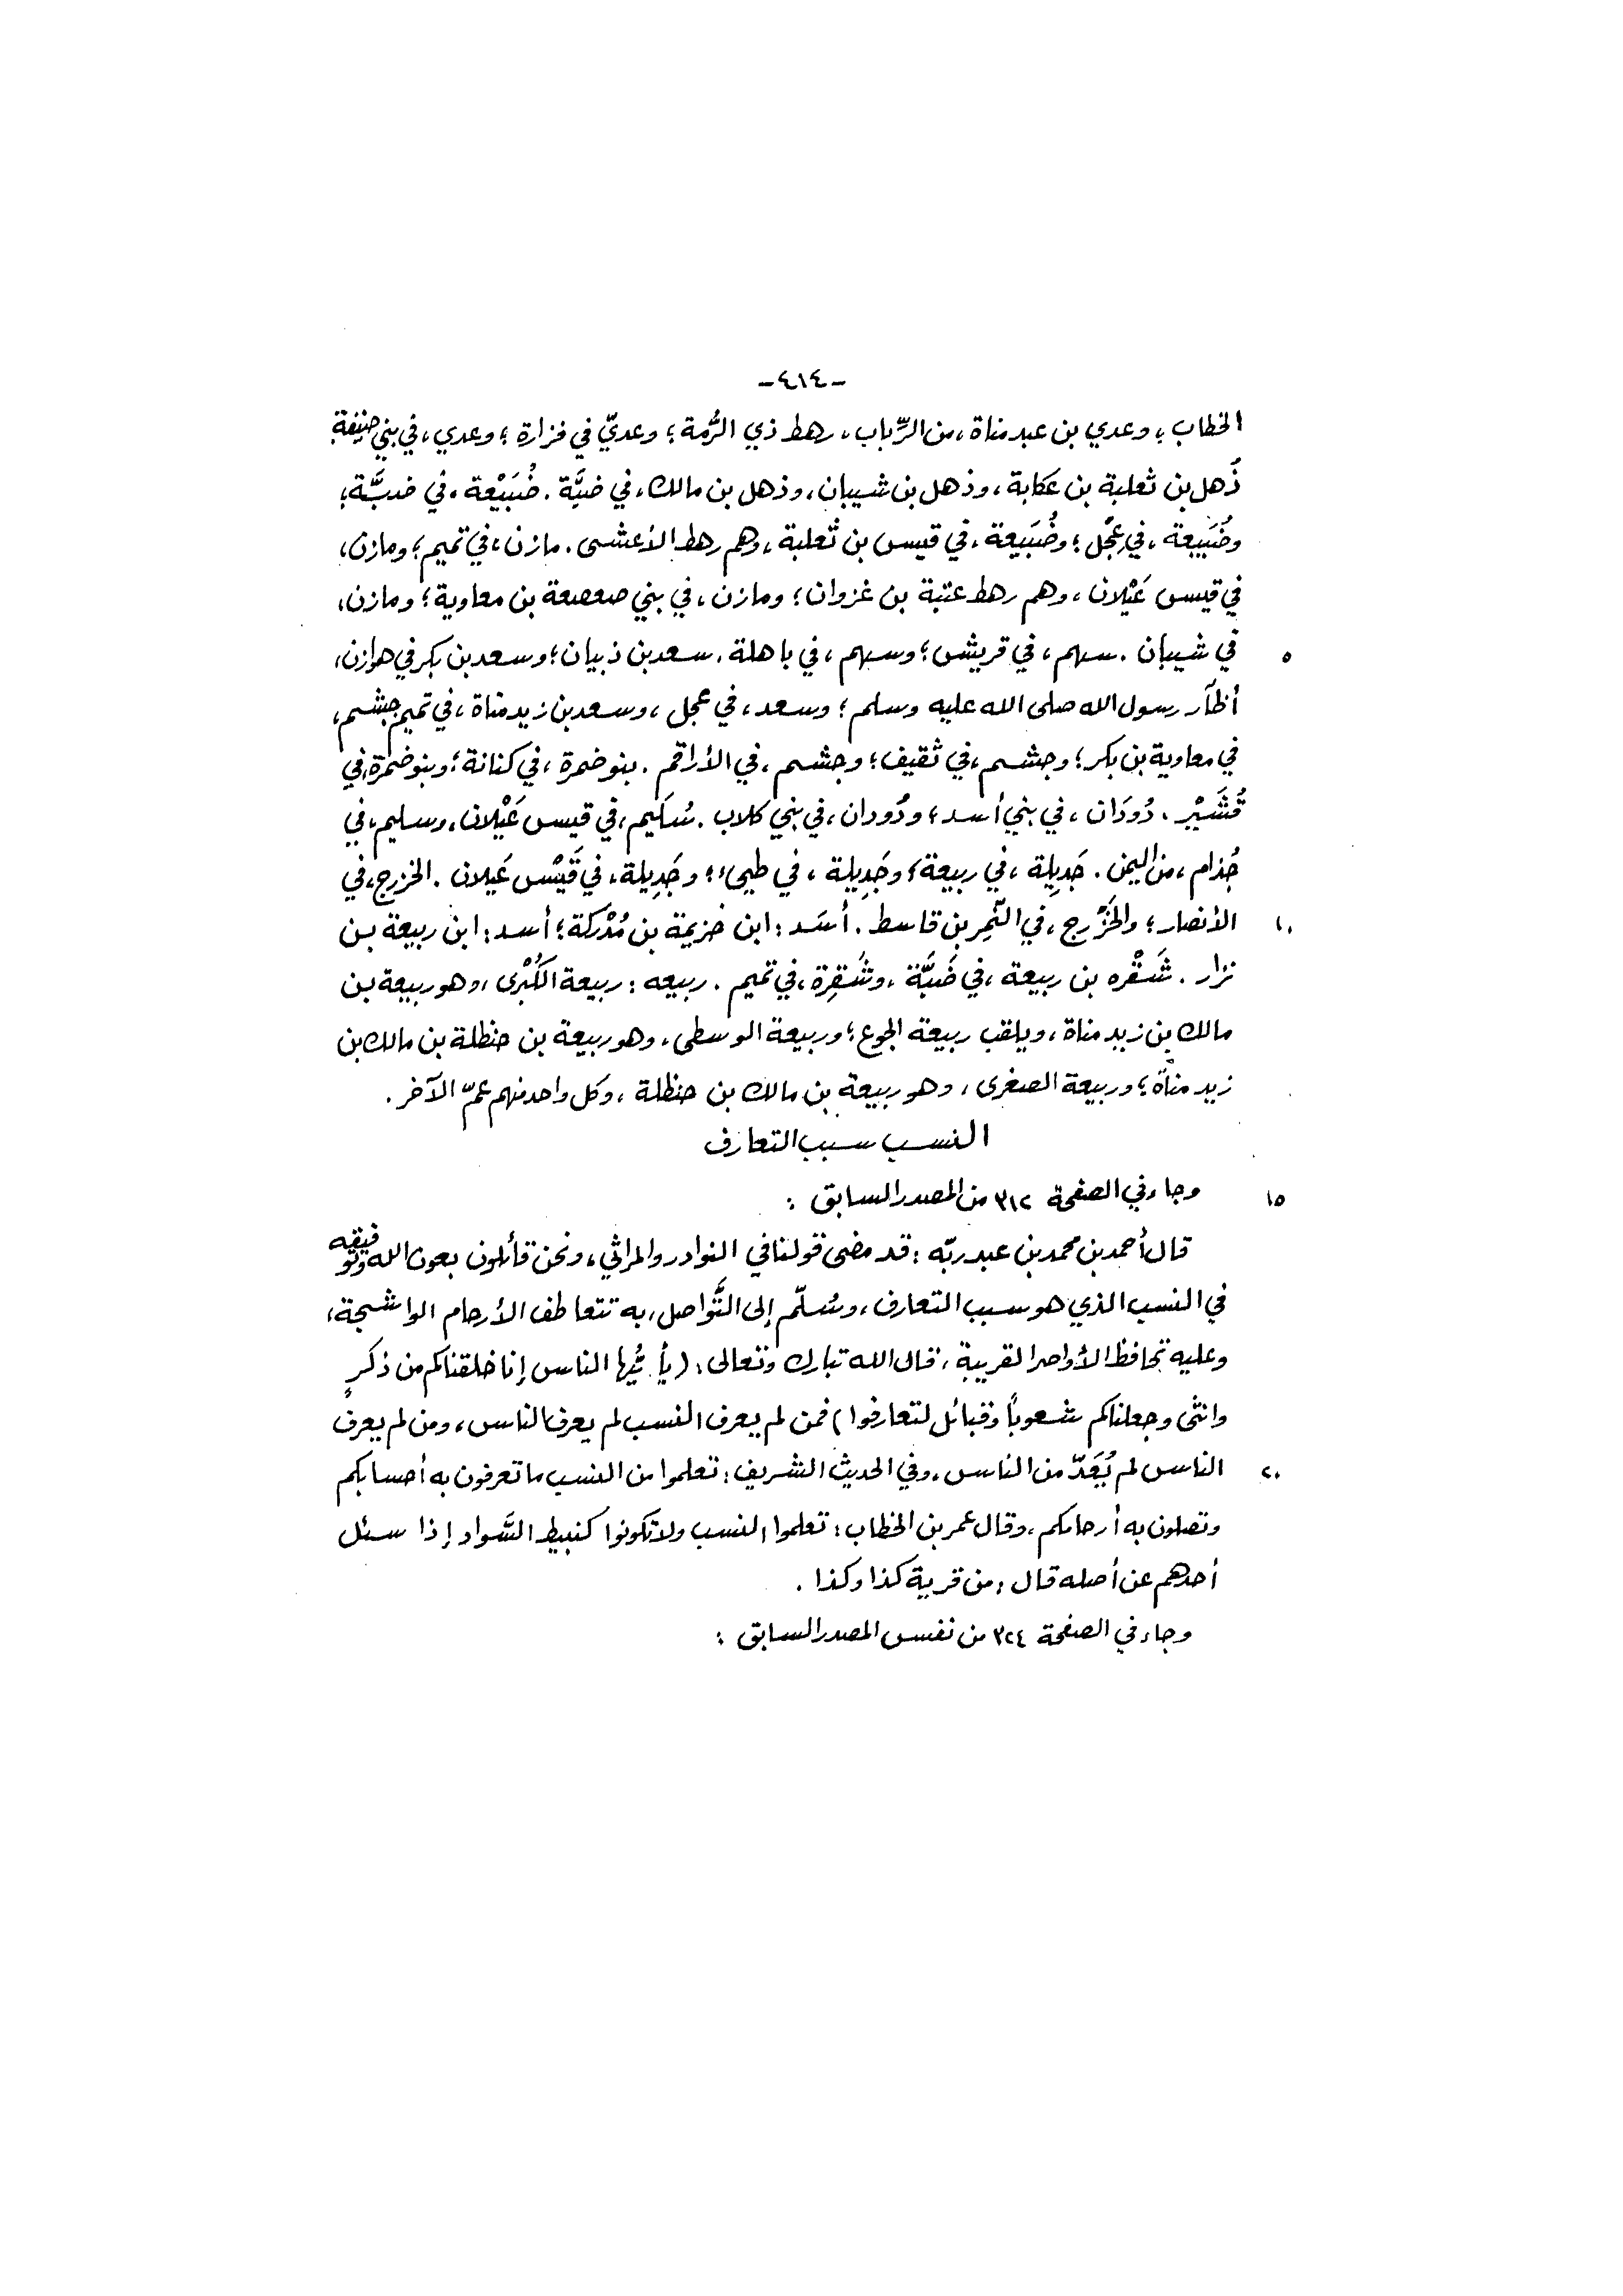 -٤١٤-
الخطاب ، وعدي بن عبد مناة ، من الرِّباب ، رهط ذي الرُّمة ؛ وعديّ في فزارة ؛ وعدي ، في بني حنيفة
ذُهل بن ثعلبة بن عكابة ، وذهل بن شيبان ، وذهل بن مالك ، في ضبَّة . ضُبَيْعة ، في ضبَّة ؛
وضُبَيعة ، في عِجْل ؛ وضُبَيعة ، في قيس بن ثعلبة ، وهم رهط الأعشى . مازن ، في تميم ؛ ومازن ،
في قيس عَيْلان ، وهم رهط عتبة بن غزوان ؛ ومازن ، في بني صعصعة بن معاوية ؛ ومازن ،
٥ في شيبان . سهم ، في قريش ؛ وسهم ، في باهلة . سعد بن ذبيان ؛ وسعد بن بكر في هوازن ،
أظآر رسول الله صلى الله عليه وسلم ؛ وسعد ، في عجل ، وسعد بن زيد مناة ، في تميم جشم ،
في معاوية بن بكر ؛ وجشم ، في ثقيف ؛ وجشم ، في الأراقم . بنو ضمرة ، في كنانة ؛ وبنو ضمرة ، في
قُشَيْر . دُودَان ، في بني أسد ، ودُودان ، في بني كلاب . سُلَيم ، في قيس عَيْلان ، وسليم ، في
جُذام ، من اليمن . جَدِيلة ، في ربيعة ؛ وجَدِيلة ، في طيىء ؛ وجَدِيلة ، في قَيْس عَيلان . الخزرج ، في
١٠ الأنصار ؛ والخَزْرج ، في النَّمِر بن قاسط . أسَد : ابن خزيمة بن مُدْركة ؛ أسد : ابن ربيعة بن
نزار . شَقْره بن ربيعة ، في ضَبَّة ، وشَقِرة ، في تميم . ربيعه : ربيعة الكُبْرى ، وهو ربيعة بن
مالك بن زيد مناة ، ويلقب ربيعة الجوع ؛ وربيعة الوسطى ، وهو ربيعة بن حنظلة بن مالك بن
زيد مناة ؛ وربيعة الصغرى ، وهو ربيعة بن مالك بن حنظلة ، وكل واحد منهم عمّ الآخر .
النسب سبب التعارف
١٥ وجاء في الصفحة ٣١٢ من المصدر السابق :
قال أحمد بن محمد بن عبد ربّه : قد مضى قولنا في النوادر والمراثي ، ونحن قائلون بعون الله وتوفيقه
في النسب الذي هو سبب التعارف ، وسُلّم إلى التَّواصل ، به تتعاطف الأرحام الواشجة ،
وعليه تحافظ الأواصر القريبة ، قال الله تبارك وتعالى : ( يأيُّها الناس إنا خلقناكم من ذكرٍ
وانثى وجعلناكم شعوباً وقبائل لتعارفوا ) فمن لم يعرف النسب لم يعرف الناس ، ومن لم يعرف
٢٠ الناس لم يُعَدّ من الناس ، وفي الحديث الشريف : تعلموا من النسب ما تعرفون به أحسابكم
وتصلون به أرحامكم ، وقال عمر بن الخطاب : تعلموا النسب ولا تكونوا كنبيط السَّواد إذا سئل
أحدهم عن أصله قال : من قرية كذا وكذا .
وجاء في الصفحة ٣٢٤ من نفس المصدر السابق :